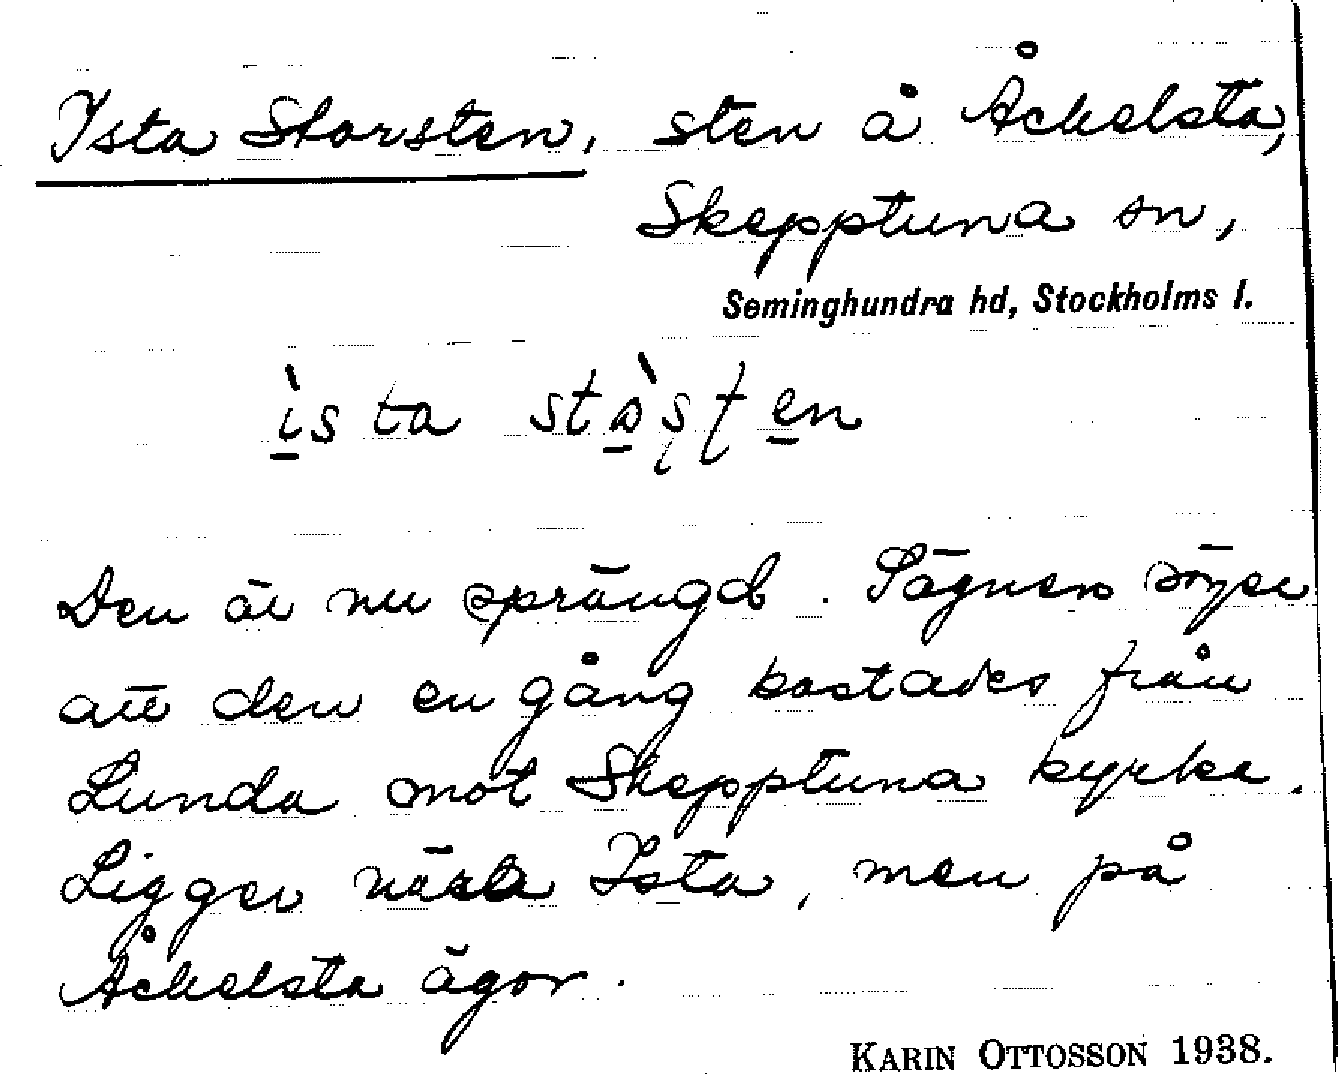 Ista Storsten, sten å Åckelsta,
Skepptuna sn,
Seminghundra hd, Stockholms l.
ista
Den är nu sprängd. Sägnen säger
att den en gång kastades från
Lunda mot Skepptuna kyrka.
Ligger nära Ista, men på
Åckelsta ägor.
KARIN OTTOSSON 1938.